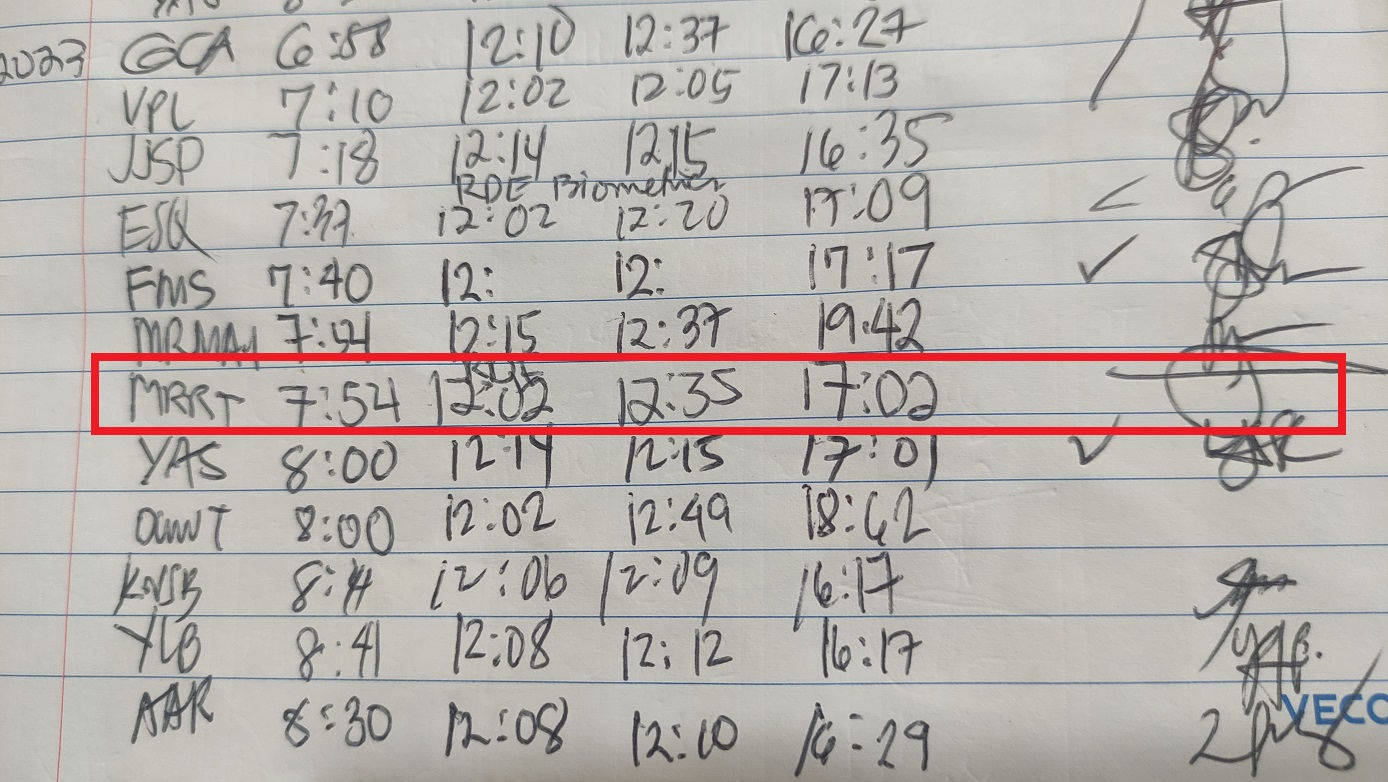 2023 GCA 6:58 12:10 12:37 16:27
VPL 7:10 12:02 12:05 17:13
JJSP 7:18 12:14 12:15 16:35
RDE Biometrics
ESQ 7:37 12:02 12:20 17:09
FMS 7:40 12: 12: 17:17
7:54 12:15 12:37 19:42
MRRT 7:54 12:02 12:35 17:02
YAS 8:00 12:14 12:15 17:01
8:00 12:02 12:49 18:42
12:06 12:09 16:17
YLB 8:41 12:08 12:12 16:17
AAR 8:30 12:08 12:10 16:29
VECO